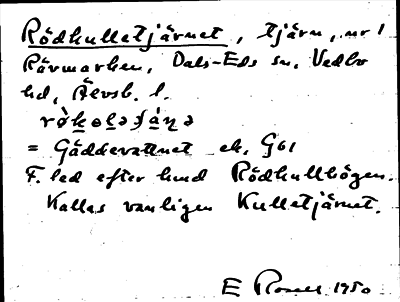 Rödkulletjärnet, tjärn, nr 1
Rävmarken, Dals-Eds sn, Vedbo
hd, Älvsb. l.
= Gäddevattnet ek. G61
F. led efter hmd Rödkullhögen.
Kallas vanligen Kulletjärnet.
E 1950